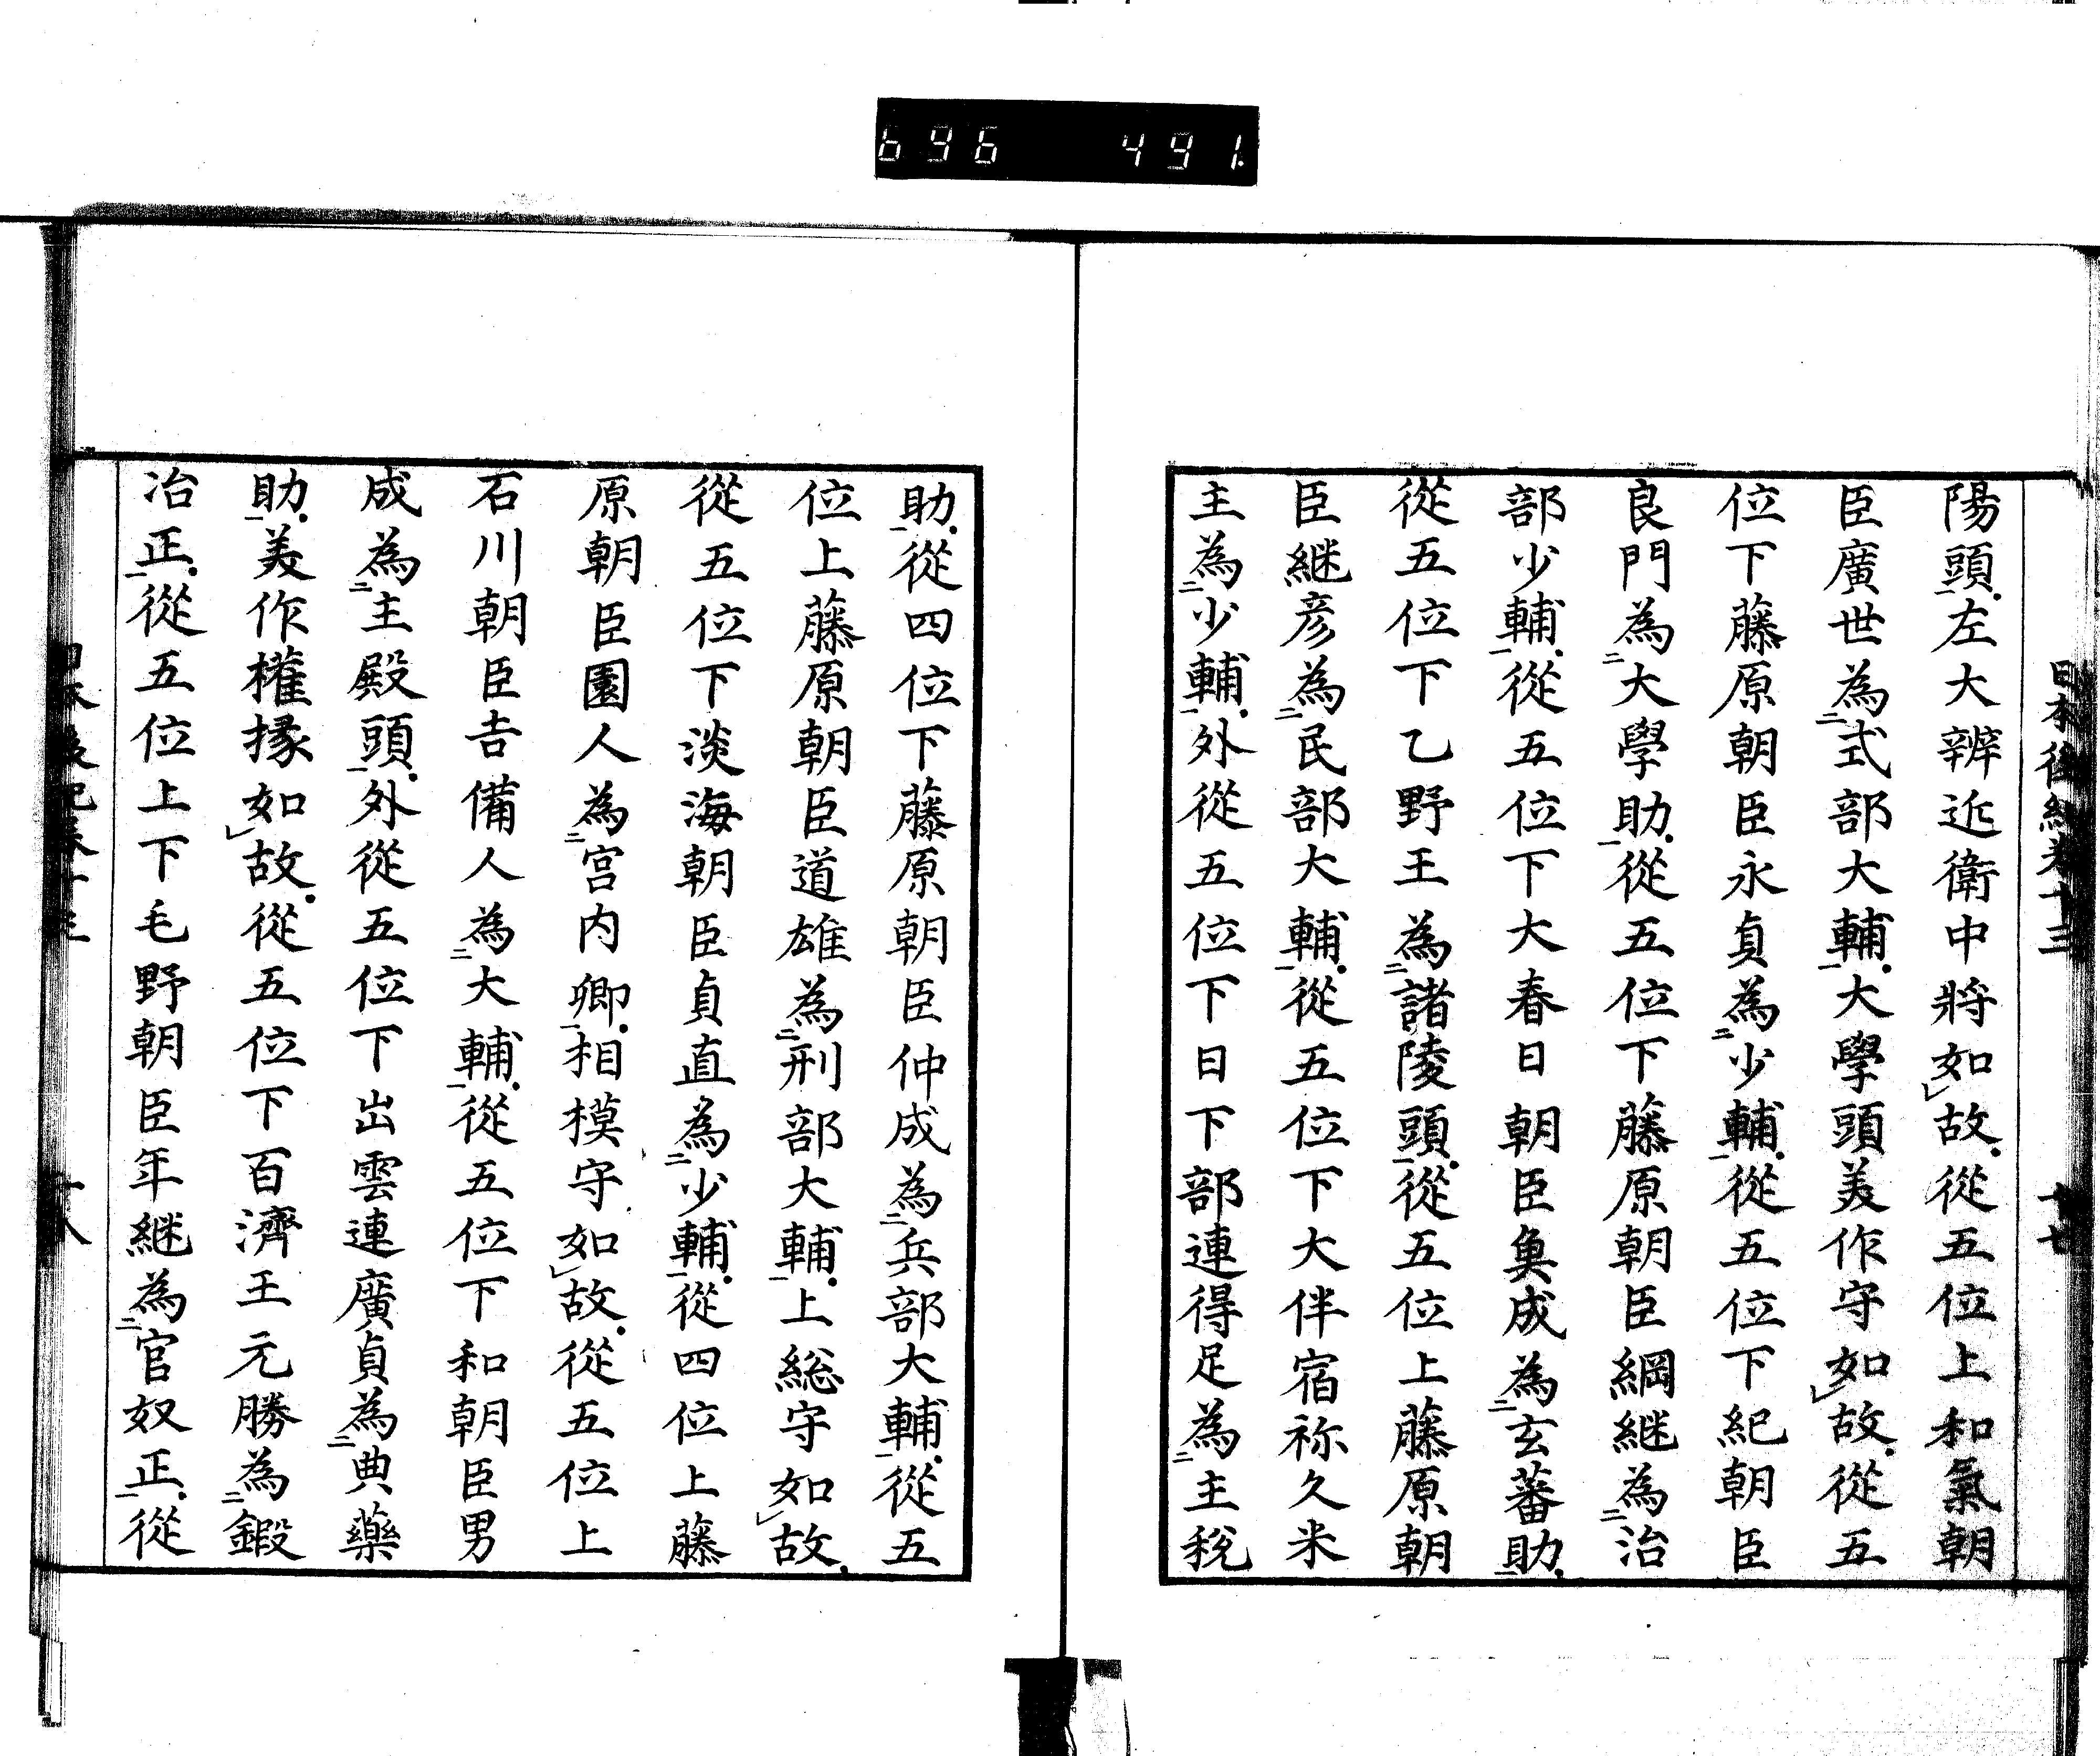 696 491
日本後紀卷十三 十七
陽頭左大辨近衛中將如故從五位上和氣朝
臣廣世為式部大輔大學頭美作守如故從五
位下藤原朝臣永貞為少輔從五位下紀朝臣
良門為大學助從五位下藤原朝臣綱継為治
部少輔從五位下大春日朝臣魚成為玄蕃助
從五位下乙野王為諸陵頭從五位上藤原朝
臣継彦為民部大輔從五位下大伴宿祢久米
主為少輔外從五位下日下部連得足為主稅
助從四位下藤原朝臣仲成為兵部大輔從五
位上藤原朝臣道雄為刑部大輔上総守如故
從五位下淡海朝臣貞直為少輔從四位上藤
原朝臣園人為宮内卿相模守如故從五位上
石川朝臣吉備人為大輔從五位下和朝臣男
成為主殿頭外從五位下出雲連廣貞為典藥
助美作權掾如故從五位下百濟王元勝為鍛
冶正從五位上下毛野朝臣年継為官奴正從